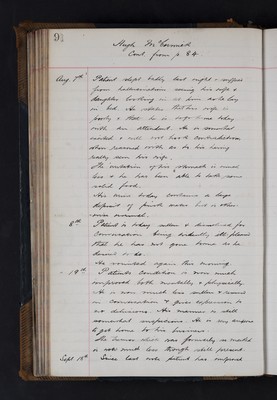 9
Hugh McCormick
Cont. from p 84
Aug. 7th. Patient slept badly last night & suffers
from hallucinations seeing his wife &
daughter looking in at him as he lay
in bed. He states that his wife is
& that he is
with her attendant. He is somewhat
excited & will not brook contradiction
when reasoned with as to his having
really seen his wife.
The irritation of his stomach is much
less & he has been able to take some
solid food.
His urine today contains a large
deposit of but is other-
wise normal.
8th Patient is today sullen & disinclined for
conversation being evidently ill pleased
that he has not gone home as he
desired to do.
He vomited again this morning.
19th Patient's condition is very much
improved both mentally & physically
He is now much less sullen & reserved
in conversation & gives expression to
no delusions. His manner is still
somewhat suspicious. He is very anxious
to get home to his business.
The tremor which was formerly so marked
is very much less though still present.
Sept. 18th Since last note patient has improved